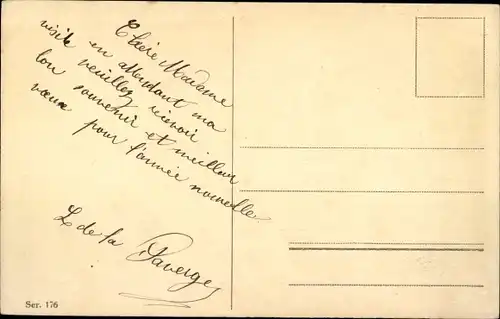 Chère Madame
en attendant ma
visite veuillez recevoir
bon souvenir et meilleur
vœux pour l'année nouvelle
L de la
Ser. 176